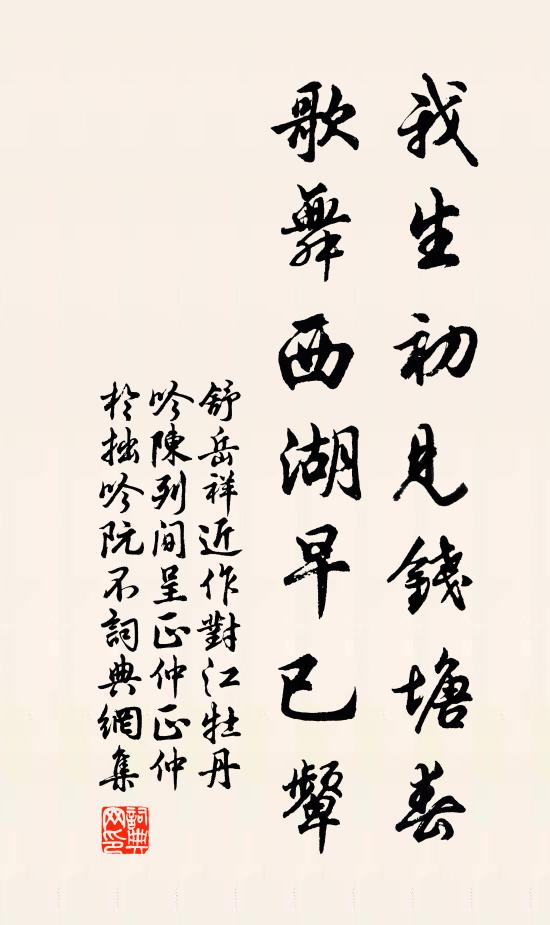 我生初見錢塘春
歌舞西湖早已顰
舒岳祥近作對江牡丹
吟陳列間呈正仲正仲
於拙吟阮不詞典網集
詞典网印